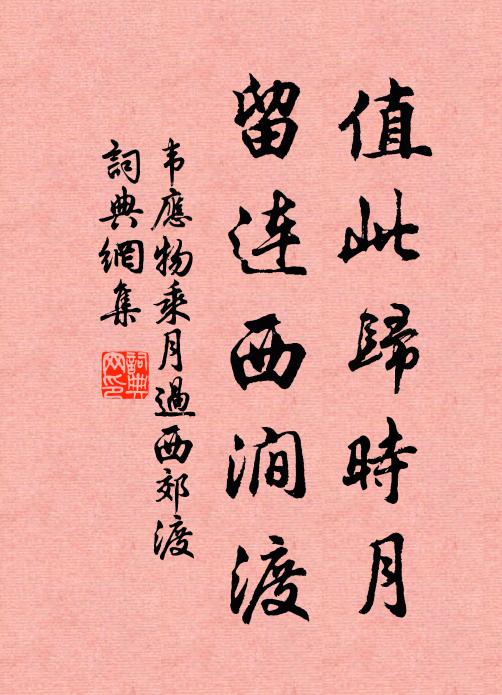 值此歸時月
留连西澗渡
韦應物乘月過西郊渡
詞典網集
詞典網印